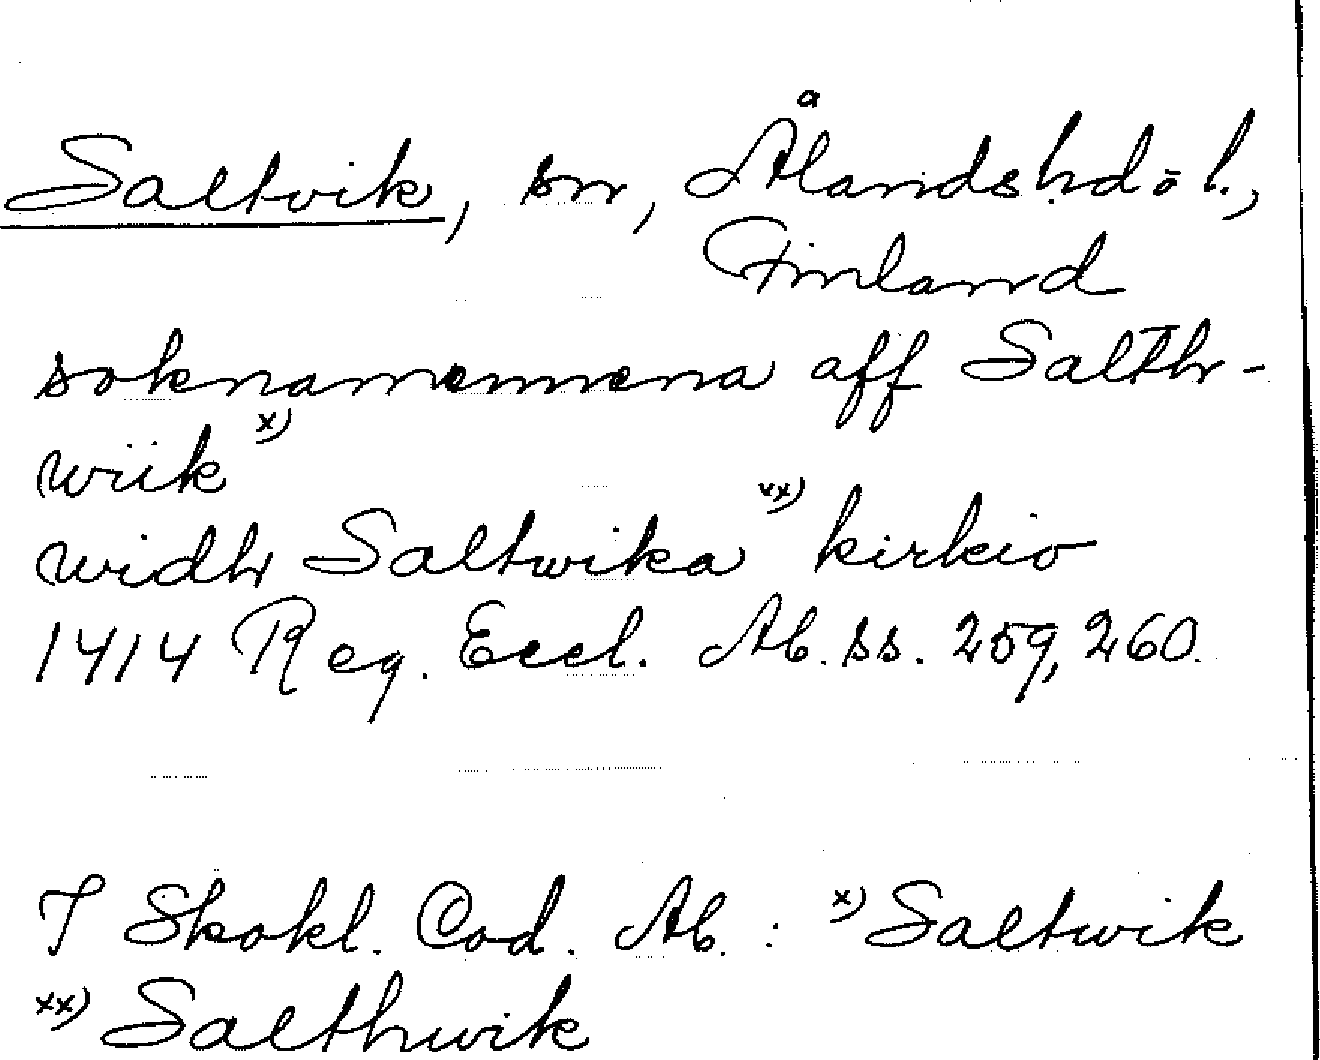 Saltvik, sn, Ålands hd o l.,
Finland
soknamennena aff Salth-
wiik x)
widh Saltwika xx) kirkio
1414 Reg. Eccl. Ab. ss. 259, 260.
I Skokl. Cod. Ab. : x) Saltwik
xx) Salthwik